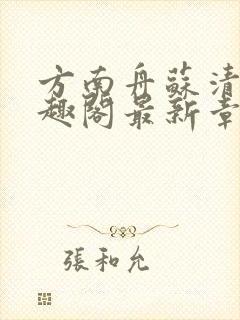 方南舟蘇清
趣閣最新章
張和允